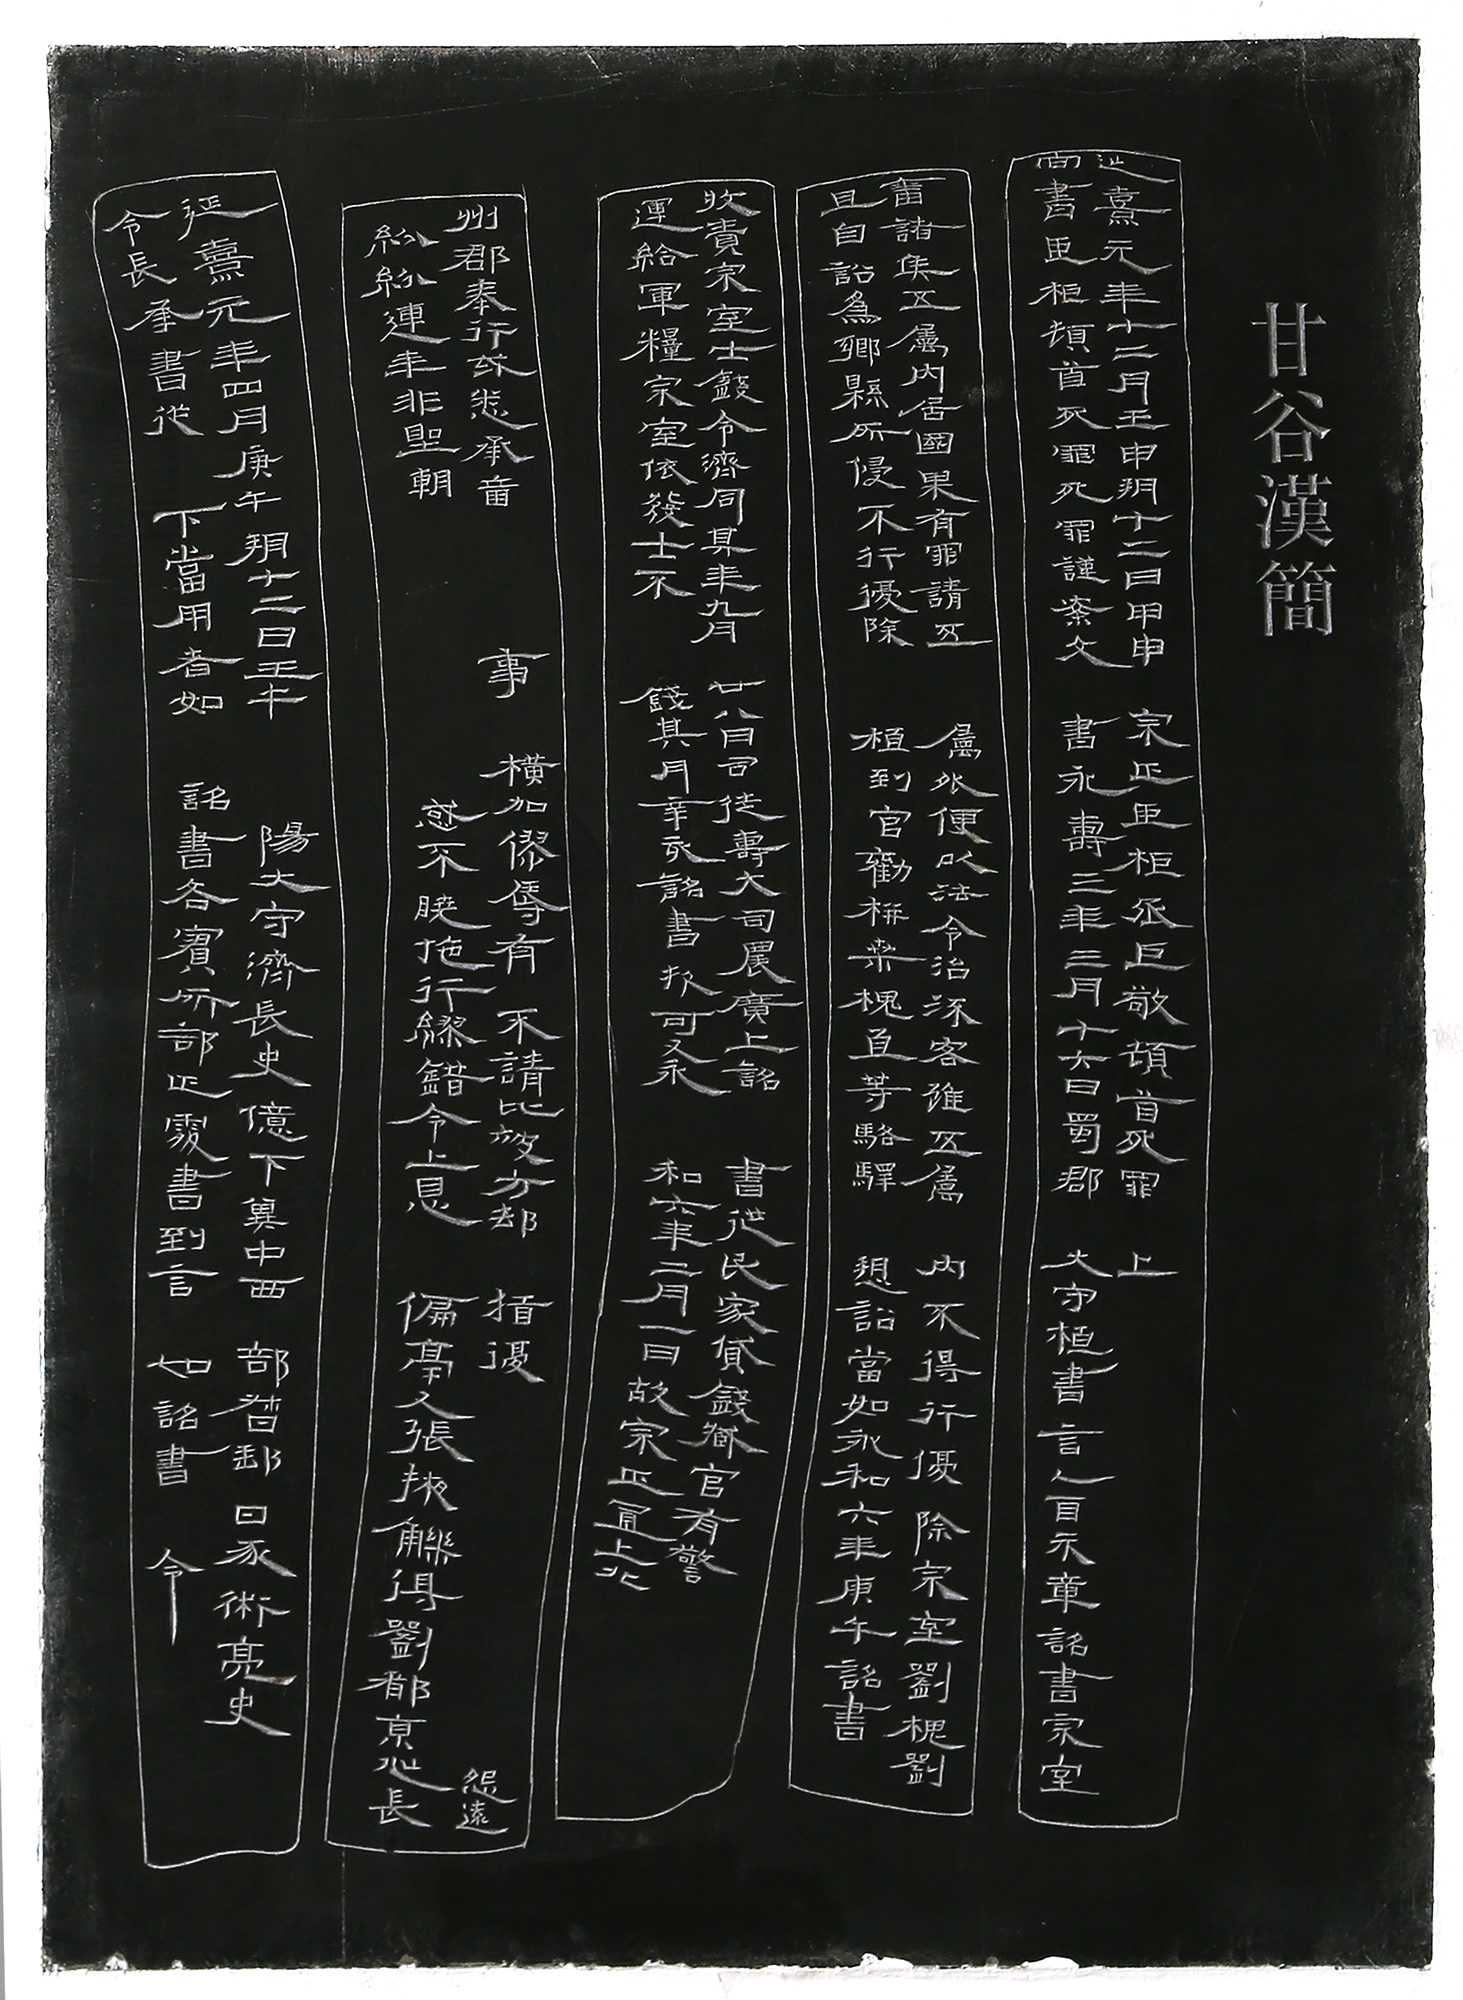 甘谷漢簡
延熹元年十二月壬申朔十二日甲申 宗正臣柜丞臣敬頓首死罪 上
書臣柜頓首死罪死罪謹案文 書永壽三年三月十六日蜀郡 大守植書言 百示章詔書宗室
諸侯五屬內居國果有罪請五 屬外便以法令治流客雖五屬 內不得行優 除宗室劉槐劉
且自訟為鄉縣所侵不行優除 植到官勸桃栗槐直等駱驛 訟當如永和六年庚午詔書
收責宗室士錢令濟同其年九月 廿八日司徒壽大司農廣上詔 書從民家貸錢縣官有警
運給軍糧宗室依幾士不 錢其月辛亥詔書報可永 和六年二月一日故宗正 上
州郡奉行 悉承 事 橫加僇辱有 不請 却 揗擾 怨遠
紛紛連年非聖朝 愈不曉 行繆錯令上恩 偏鬲人張掖觻得劉都 心長
延熹元年四月庚午朔十二日壬午 陽大守濟長史億下冀中西 部督郵 曰 術亮史
令長承書從 下當用者如 詔書各實所部正 書到言 如詔書 令